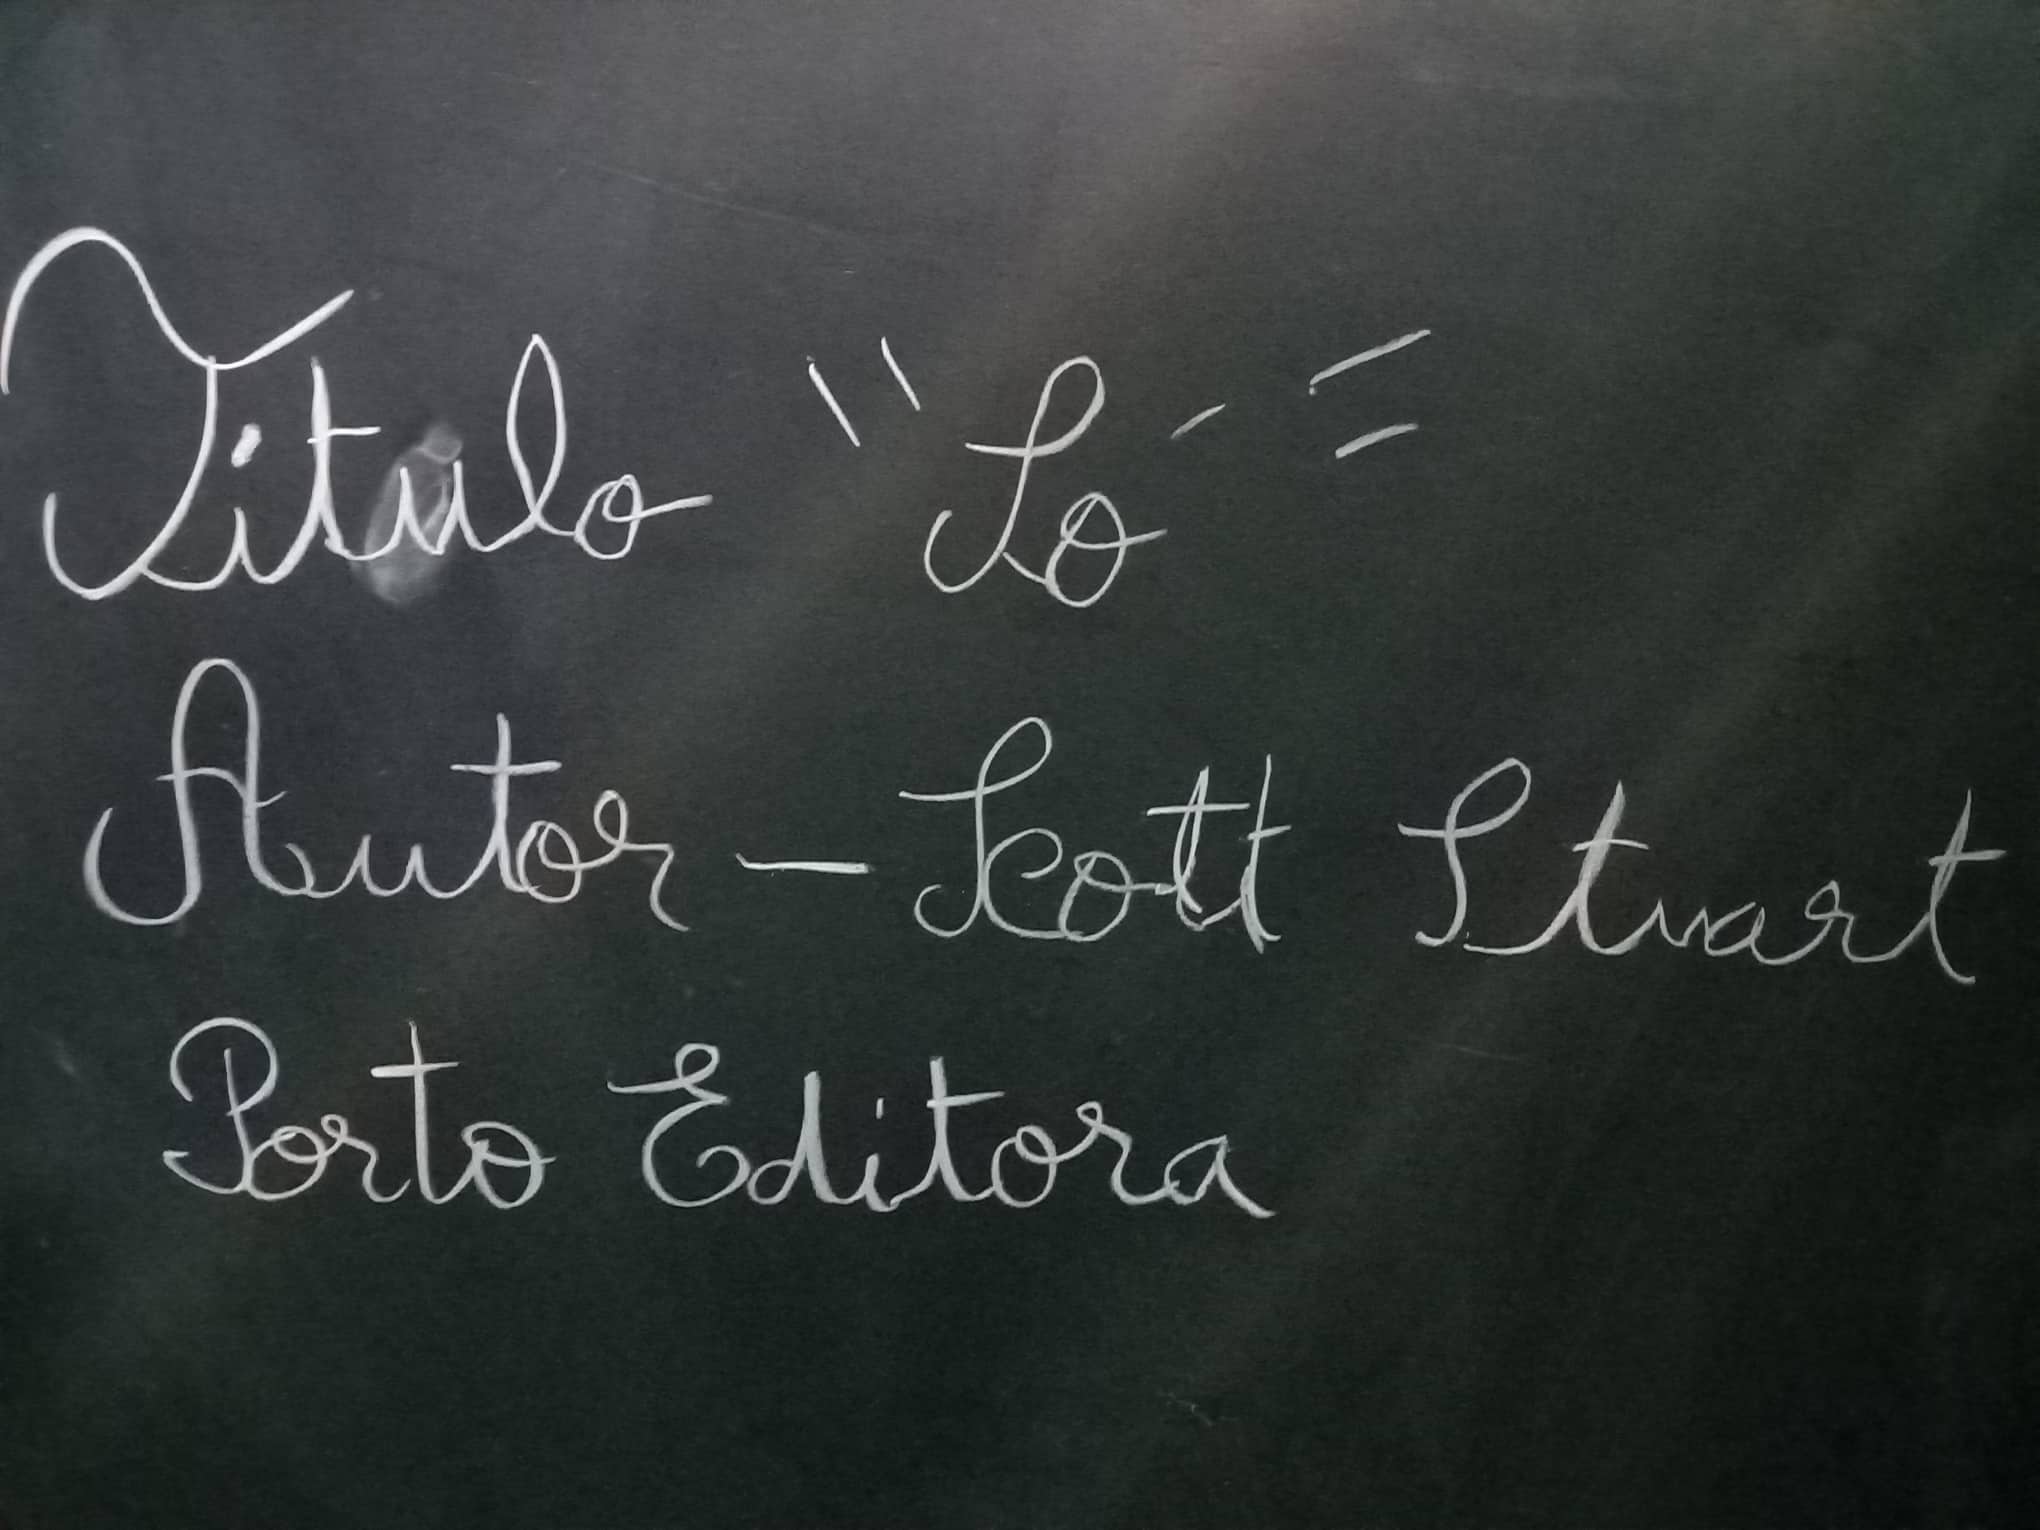 Titulo "Só"
Autor – Scott Stuart
Porto Editora